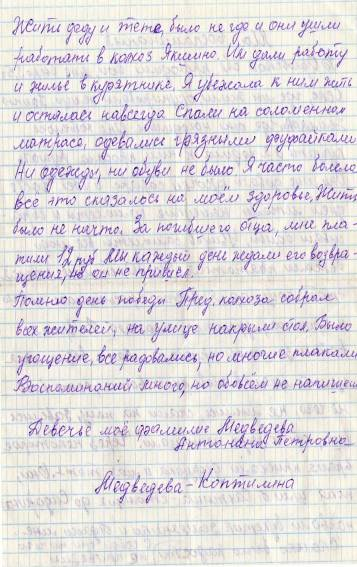 Жить деду и тёте, было не где и они ушли
работать в колхоз Якшино. Им дали работу
и жильё в курятнике. Я уезжала к ним жить
и осталась навсегда. Спали на соломенном
матрасе, одевались грязными фуфайками.
Ни одежды, ни обуви не было. Я часто болела
все это сказалось на моём здоровье, Жить
было не ничто. За погибшего отца, мне пла-
тили 12 руб. Мы каждый день ждали его возвра-
щения, но он не пришел.
Помню день победы. Пред. колхоза собрал
всех жителей, на улице накрыли стол. Было
угощение, все радовались, но многие плакали.
Воспоминаний много, но обо всём не напишешь
Девечье моё фамилие Медведева
Антонина Петровна
Медведева-Коптилина